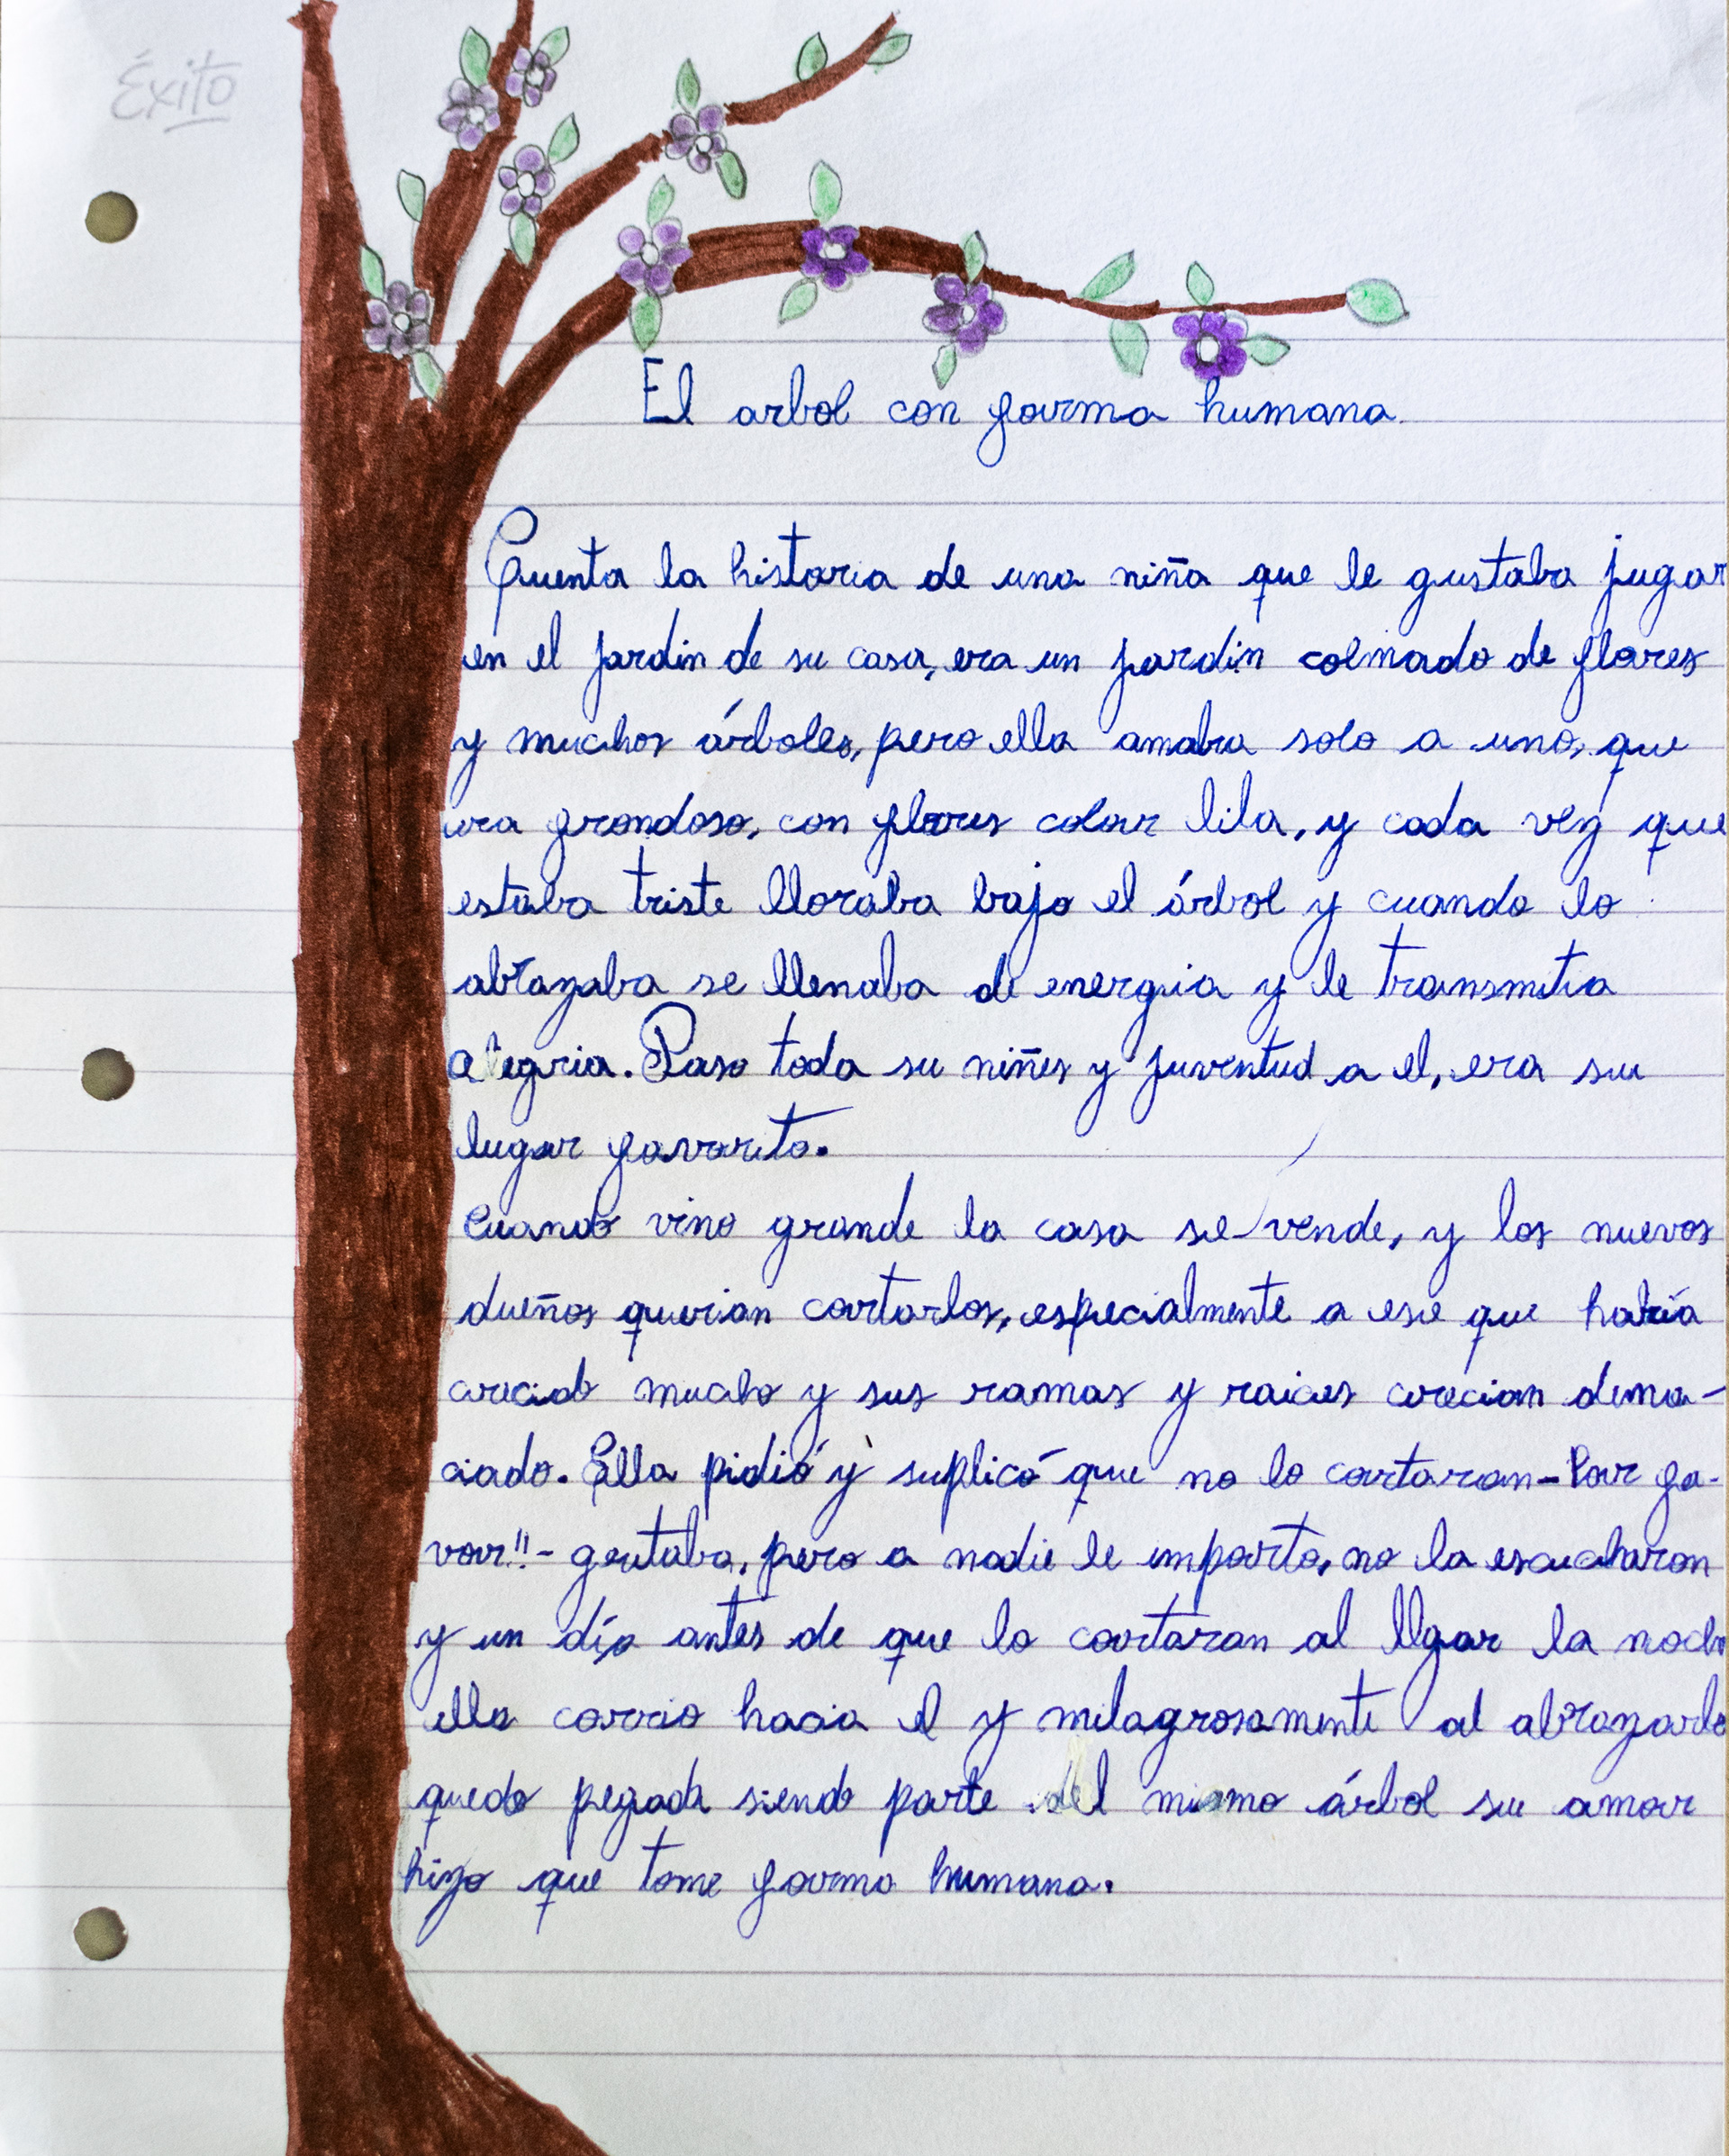 Éxito
El arbol con forma humana.
Cuenta la historia de una niña que le gustaba jugar
en el jardin de su casa, era un jardin colmado de flores
y muchos árboles, pero ella amaba solo a uno, que
era grandoso, con flores color lila, y cada vez que
estaba triste lloraba bajo el árbol y cuando lo
abrazaba se llenaba de energia y le transmitia
alegria. Paso toda su niñes y juventud a el, era su
lugar favorito.
Cuando vino grande la casa se vende, y los nuevos
dueños querian cortarlos, especialmente a ese que había
crecido mucho y sus ramas y raices crecian dema-
ciado. Ella pidió y suplicó que no lo cortaran - Por fa-
vor!! - gritaba, pero a nadie le importo, no la escucharon
y un día antes de que lo cortaran al llgar la noche
ella corrio hacia el y milagrosamente al abrazarlo
quedo pegada siendo parte del mismo árbol su amor
hizo que tome forma humana.